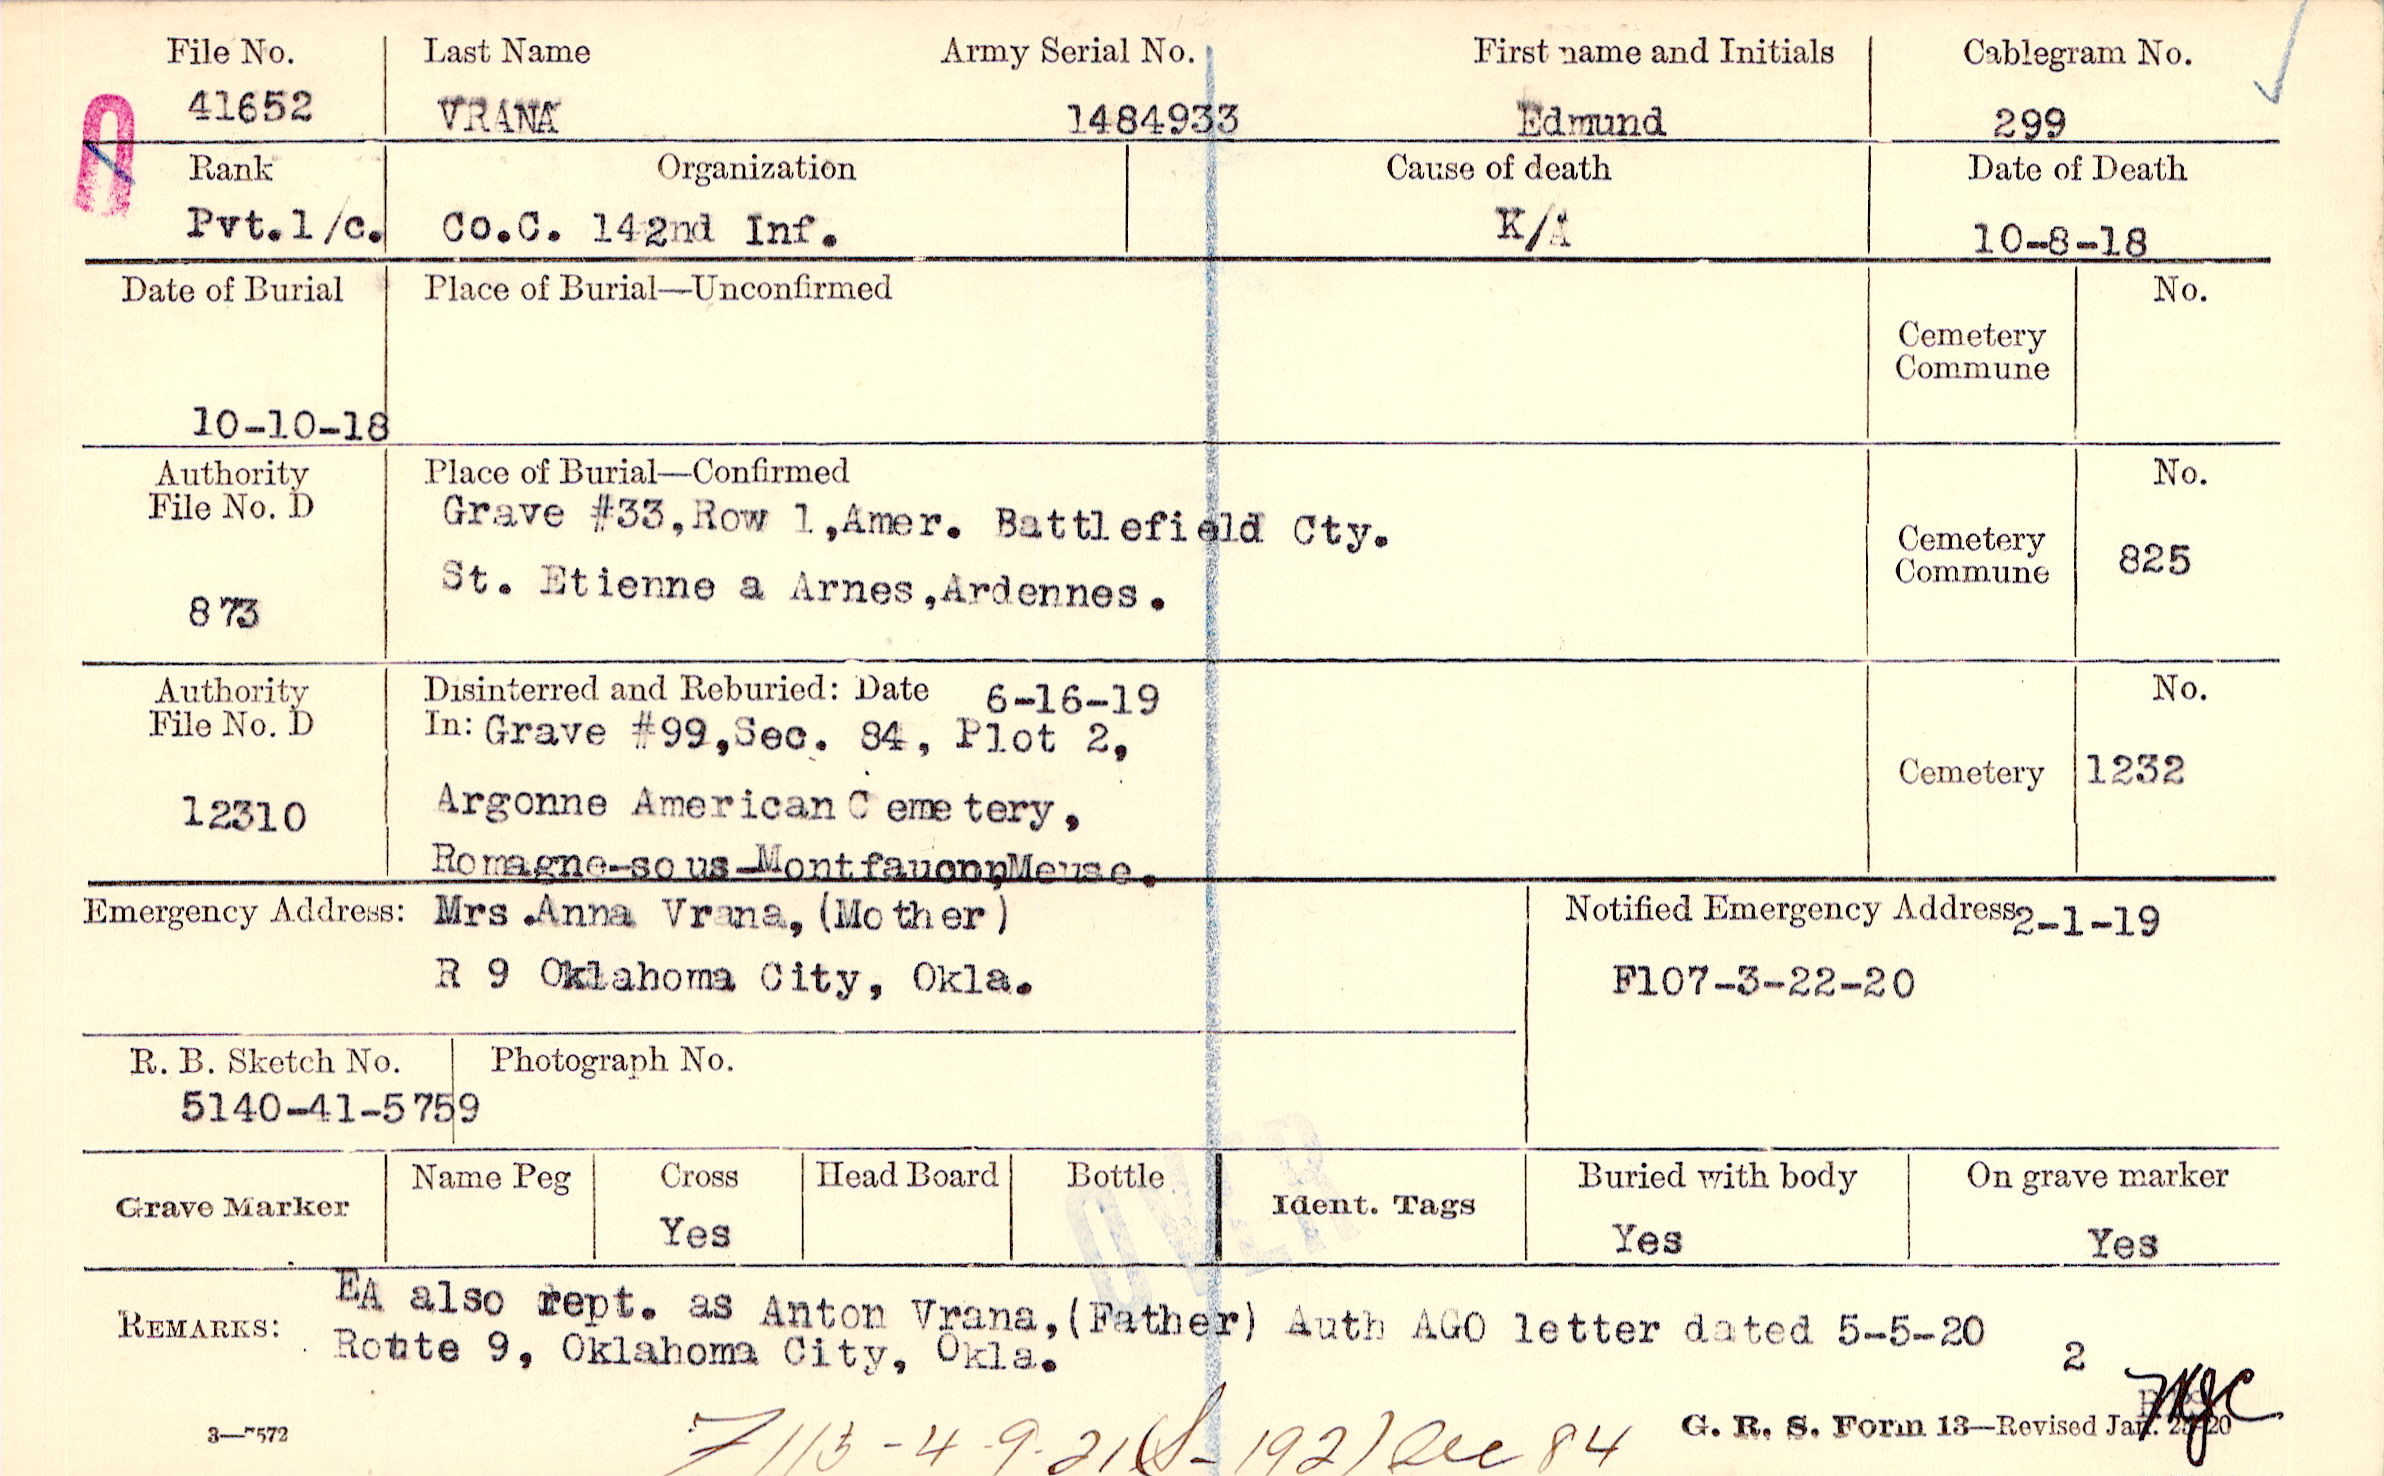 File No. Last Name Army Serial No. First name and Initials Cablegram No.
41652 VRANA 1484933 Edmund 299
Rank Organization Cause of death Date of Death
Pvt.1/c. Co.C. 142nd Inf. K/A 10-8-18
Date of Burial Place of Burial—Unconfirmed No.
Cemetery
Commune
10-10-18
Authority Place of Burial—Confirmed No.
File No. D Grave #33,Row 1,Amer. Battlefield Cty.
Cemetery
Commune 825
873 St. Etienne a Arnes,Ardennes.
Authority Disinterred and Reburied: Date 6-16-19 No.
File No. D In: Grave #99,Sec. 84, Plot 2,
Cemetery 1232
12310 Argonne American Cemetery,
Romagne-sous-Montfaucon,Meuse.
Emergency Address: Mrs.Anna Vrana,(Mother) Notified Emergency Address 2-1-19
R 9 Oklahoma City, Okla. F107-3-22-20
R. B. Sketch No. Photograph No.
5140-41-5759
Grave Marker Name Peg Cross Head Board Bottle Ident. Tags Buried with body On grave marker
Yes Yes Yes
REMARKS: EA also rept. as Anton Vrana,(Father) Auth AGO letter dated 5-5-20
Route 9, Oklahoma City, Okla. 2
3—7572 G. R. S. Form 13—Revised Jan. 20
4-9-21 192) Sec 84